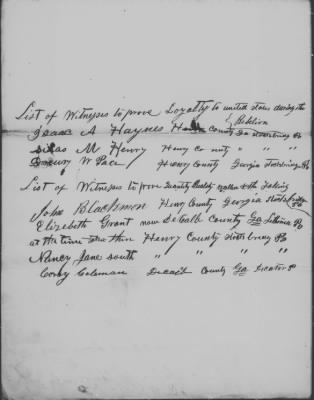 List of Witnesses to prove Loyalty to united states during the
Rebelion
Isaac A Haynes Henry County Ga Stockbridge Po
Silas M Henry Henry County " " "
W Pace Henry County Georgia Stockbridge Po
List of Witnesses to prove Quantity Quality & the taking
John Blackmon Henry County Georgia Stockbridge Po
Elizabeth Grant now DeCalb County Ga Lithonia Po
at the time then Henry County Stockbridge Po
Nancy Jane South " " " "
Corby Coleman Decalb County Ga Decatur Po